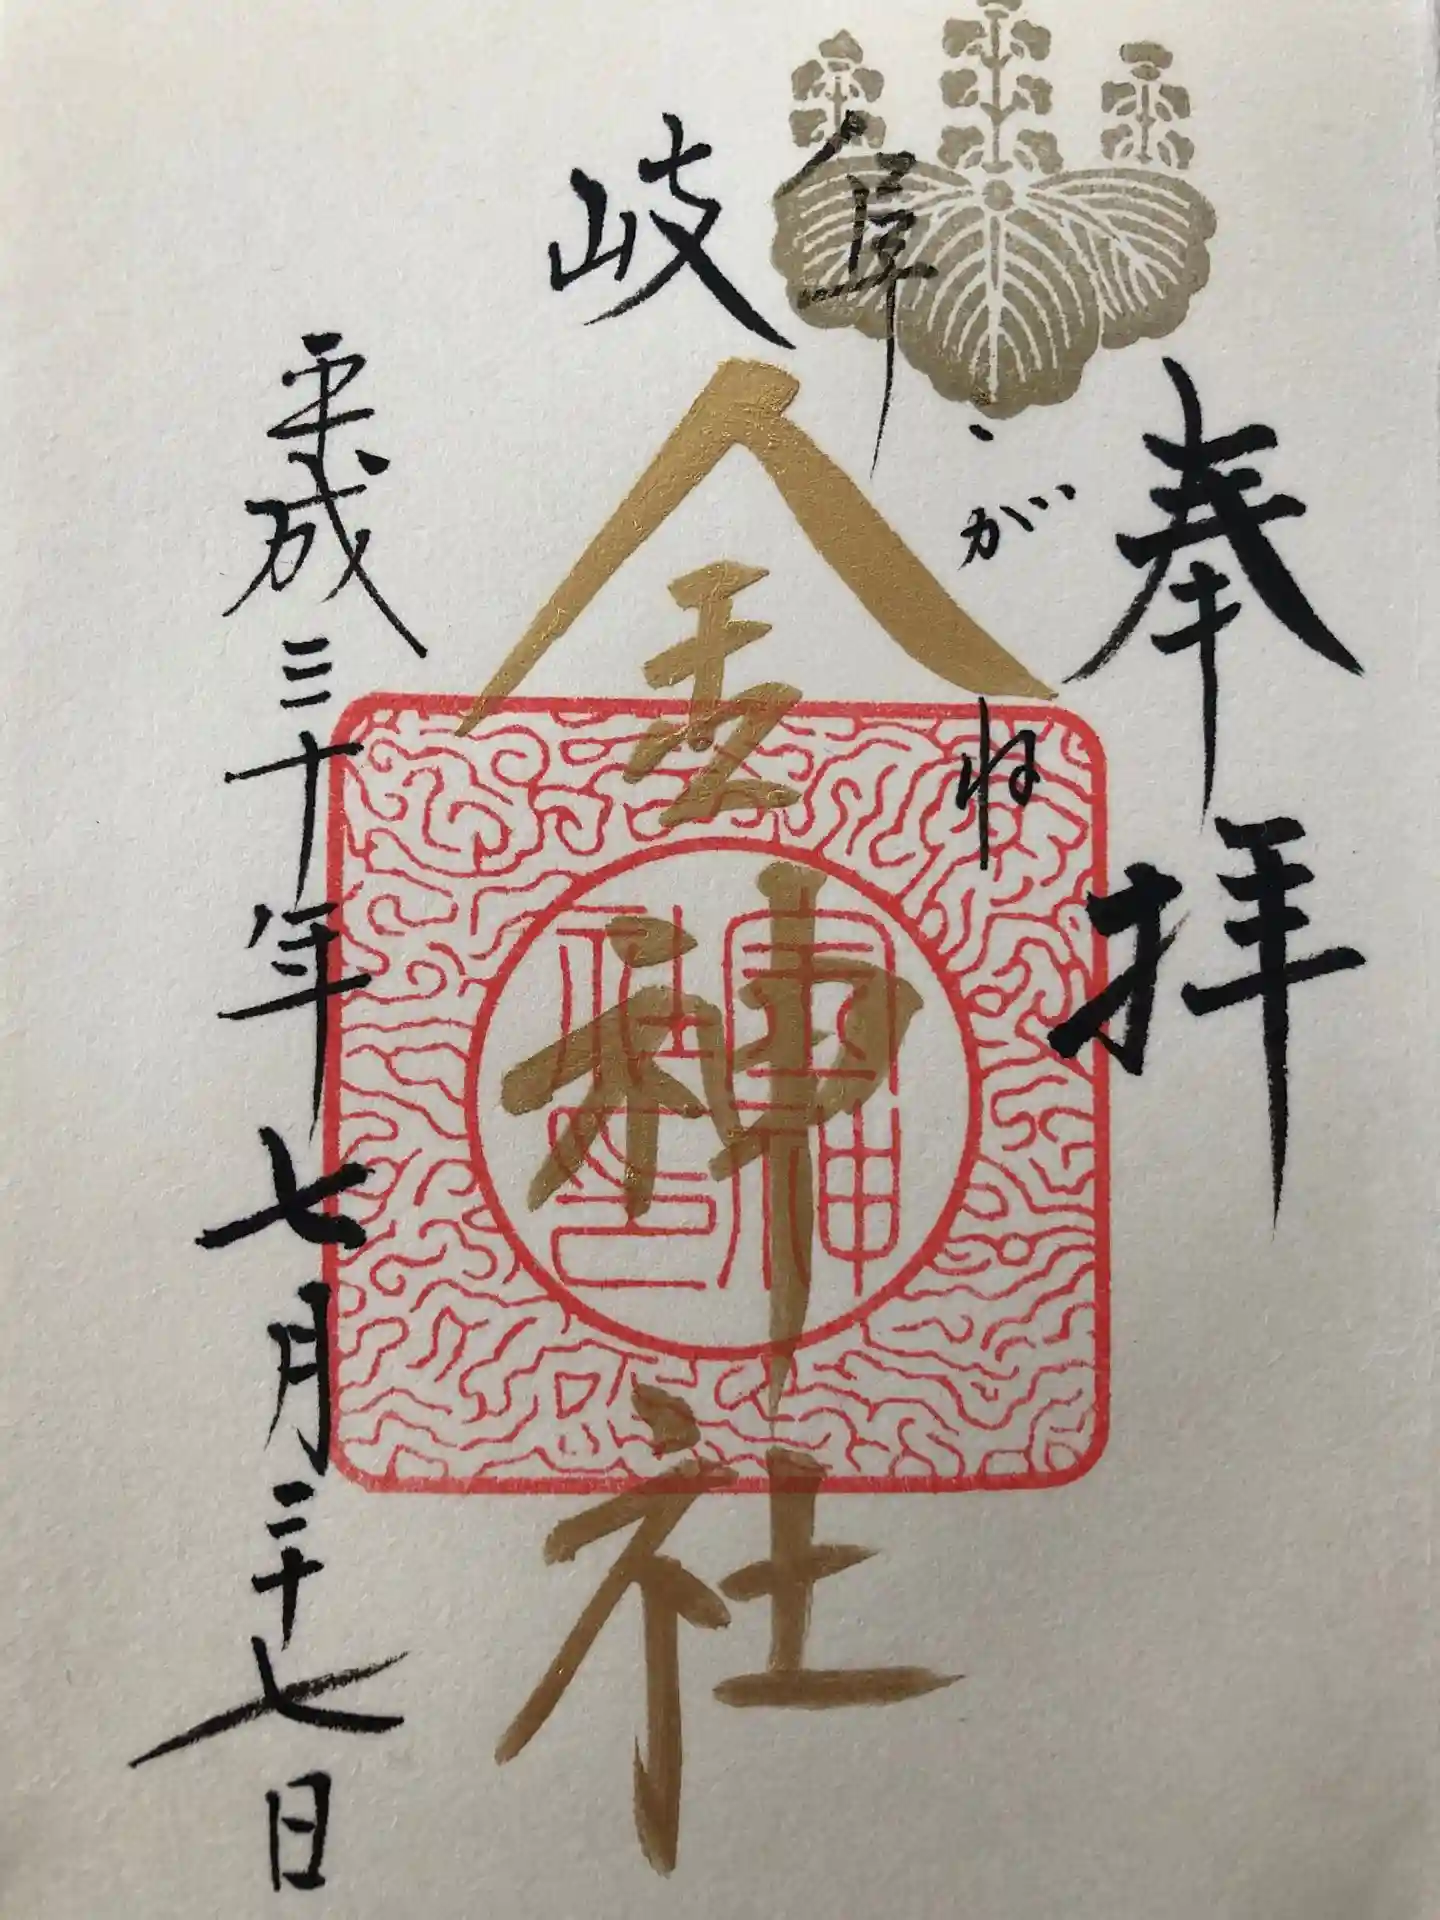 奉拝
岐阜
こがね
金神社
金神社印
平成三十年七月二十七日